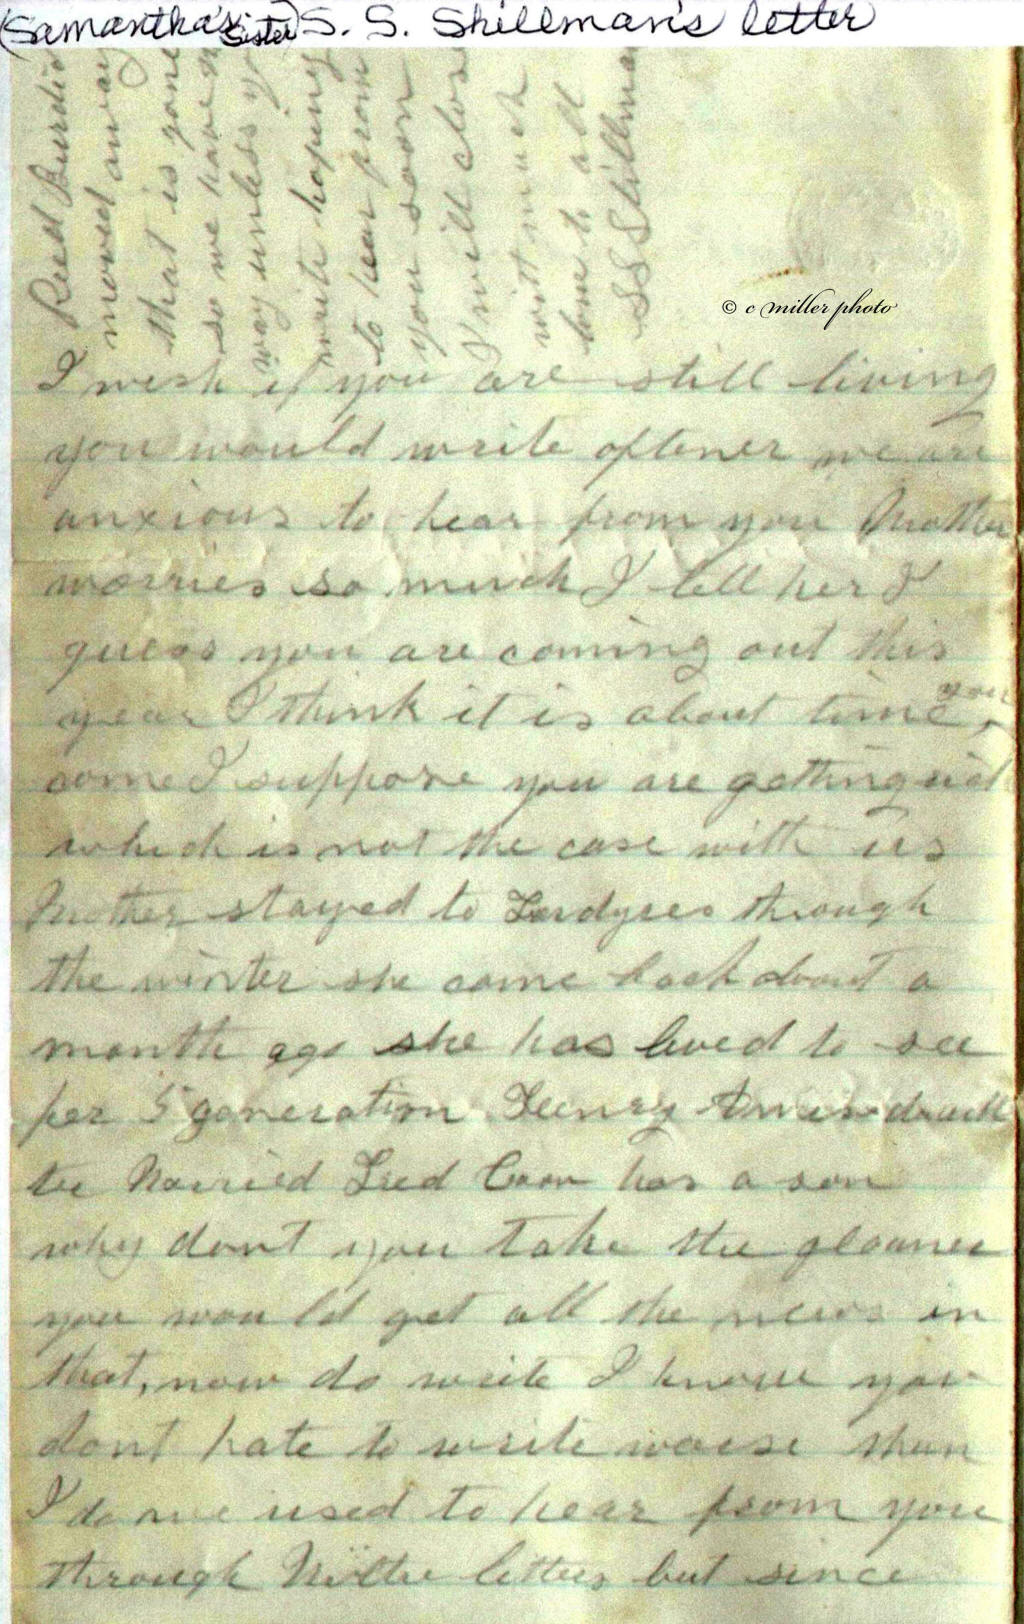 (Samantha's Sister) S. S. Skillman's letter
© c miller photo
I wish if you are still living
you would write oftener we are
anxious to hear from you Mother
worries so much I tell her I
guess you are coming out this
year I think it is about time you
come I suppose you are getting
which is not the case with us
Mother stayed to through
the winter she came back about a
month ago she has lived to see
her 5 generation
ter Married Coon has a son
why dont you take the gleaner
you would get all the news in
that, now do write I know you
dont hate to write worse than
I do we used to hear from you
through letters but since
Reed Burdic
moved away
that is gone
so we have n
way unless y
write hoping
to hear from
you soon
I will close
with much
love to all
S S Skillma